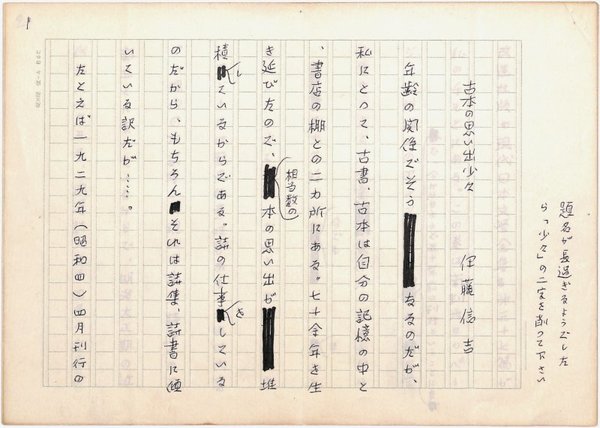 題名が長過ぎるようでした
ら「少々」の二字を削って下さい
古本の思い出少々
伊藤信吉
年齢の関係でそうなるのだが、
私にとって、古書、古本は自分の記憶の中と
、書店の棚との二カ所にある。七十余年を生
き延びたので、相当数の本の思い出が堆
積しているからである。詩の仕事をしている
のだから、もちろんそれは詩集、詩書に傾
いている訳だが……。
たとえば一九二九年(昭和四)四月刊行の